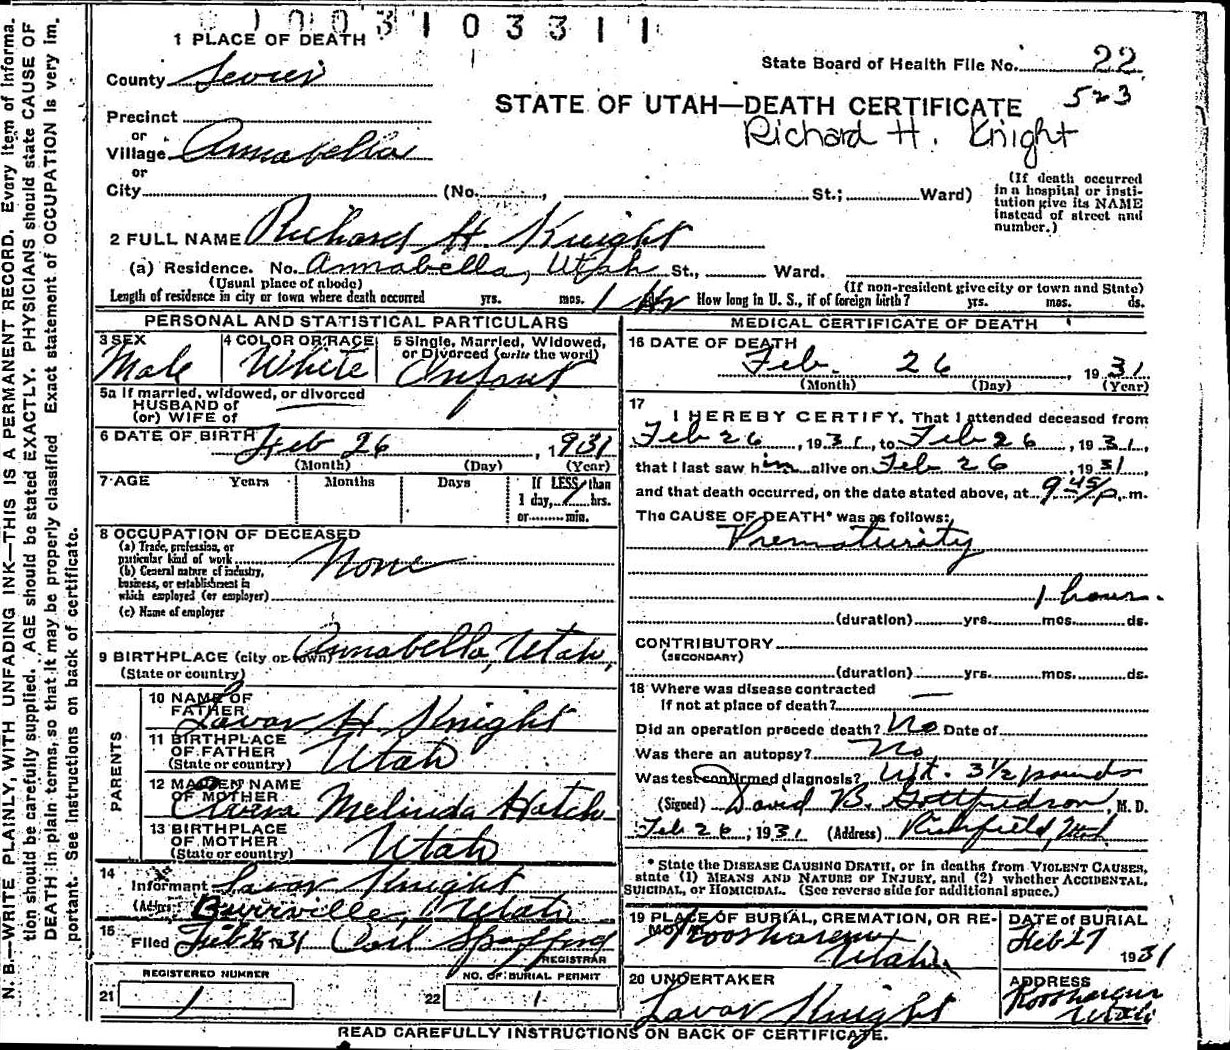 1003 1 0 3 3 1 1
1 PLACE OF DEATH
County Sevier
State Board of Health File No. 22
523
STATE OF UTAH—DEATH CERTIFICATE
Richard H. Knight
Precinct
or
Village Annabella
or
City (No. , St.; Ward)
(If death occurred in a hospital or insti-
tution give its NAME
instead of street and
number.)
2 FULL NAME Richard H. Knight
(a) Residence. No. Annabella, Utah St., Ward.
(Usual place of abode) (If non-resident give city or town and State)
Length of residence in city or town where death occurred yrs. mos. 1 Hr How long in U. S., if of foreign birth? yrs. mos. ds.
PERSONAL AND STATISTICAL PARTICULARS
3 SEX Male
4 COLOR OR RACE White
5 Single, Married, Widowed,
or Divorced (write the word)
Infant
5a If married, widowed, or divorced
HUSBAND of
(or) WIFE of
6 DATE OF BIRTH Feb 26, 1931
(Month) (Day) (Year)
7 AGE Years Months Days If LESS than
1 day, 1 hrs.
or min.
8 OCCUPATION OF DECEASED
(a) Trade, profession, or
particular kind of work None
(b) General nature of industry,
business, or establishment in
which employed (or employer)
(c) Name of employer
9 BIRTHPLACE (city or town) Annabella, Utah,
(State or country)
PARENTS
10 NAME OF
FATHER Lavar H. Knight
11 BIRTHPLACE
OF FATHER Utah
(State or country)
12 MAIDEN NAME
OF MOTHER Melinda Hatch
13 BIRTHPLACE
OF MOTHER Utah
(State or country)
14
Informant Lavar Knight
(Address) Burrville, Utah
15
Filed Feb 26 1931 Spafford
REGISTRAR
REGISTERED NUMBER
21 1
NO. OF BURIAL PERMIT
22 1
MEDICAL CERTIFICATE OF DEATH
16 DATE OF DEATH
Feb. 26 1931
(Month) (Day) (Year)
17
I HEREBY CERTIFY, That I attended deceased from
Feb 26, 1931, to Feb 26, 1931,
that I last saw him alive on Feb 26, 1931,
and that death occurred, on the date stated above, at 9 45/p. m.
The CAUSE OF DEATH* was as follows:
Prematurity
1 hour.
(duration) yrs. mos. ds.
CONTRIBUTORY
(SECONDARY)
(duration) yrs. mos. ds.
18 Where was disease contracted
If not at place of death? —
Did an operation precede death? No Date of
Was there an autopsy? No
Was test confirmed diagnosis? Wt. 3½ pounds
(Signed) David B. Gottfredson, M. D.
Feb 26, 1931 (Address) Richfield, Utah
* State the DISEASE CAUSING DEATH, or in deaths from VIOLENT CAUSES,
state (1) MEANS AND NATURE OF INJURY, and (2) whether ACCIDENTAL,
SUICIDAL, or HOMICIDAL. (See reverse side for additional space.)
19 PLACE OF BURIAL, CREMATION, OR RE-
MOVAL Koosharem
Utah
DATE OF BURIAL
Feb 27 1931
20 UNDERTAKER
Lavar Knight
ADDRESS
Koosharem
Utah
READ CAREFULLY INSTRUCTIONS ON BACK OF CERTIFICATE.
N. B.—WRITE PLAINLY, WITH UNFADING INK—THIS IS A PERMANENT RECORD. Every item of informa-
tion should be carefully supplied. AGE should be stated EXACTLY. PHYSICIANS should state CAUSE OF
DEATH in plain terms, so that it may be properly classified. Exact statement of OCCUPATION is very im-
portant. See instructions on back of certificate.